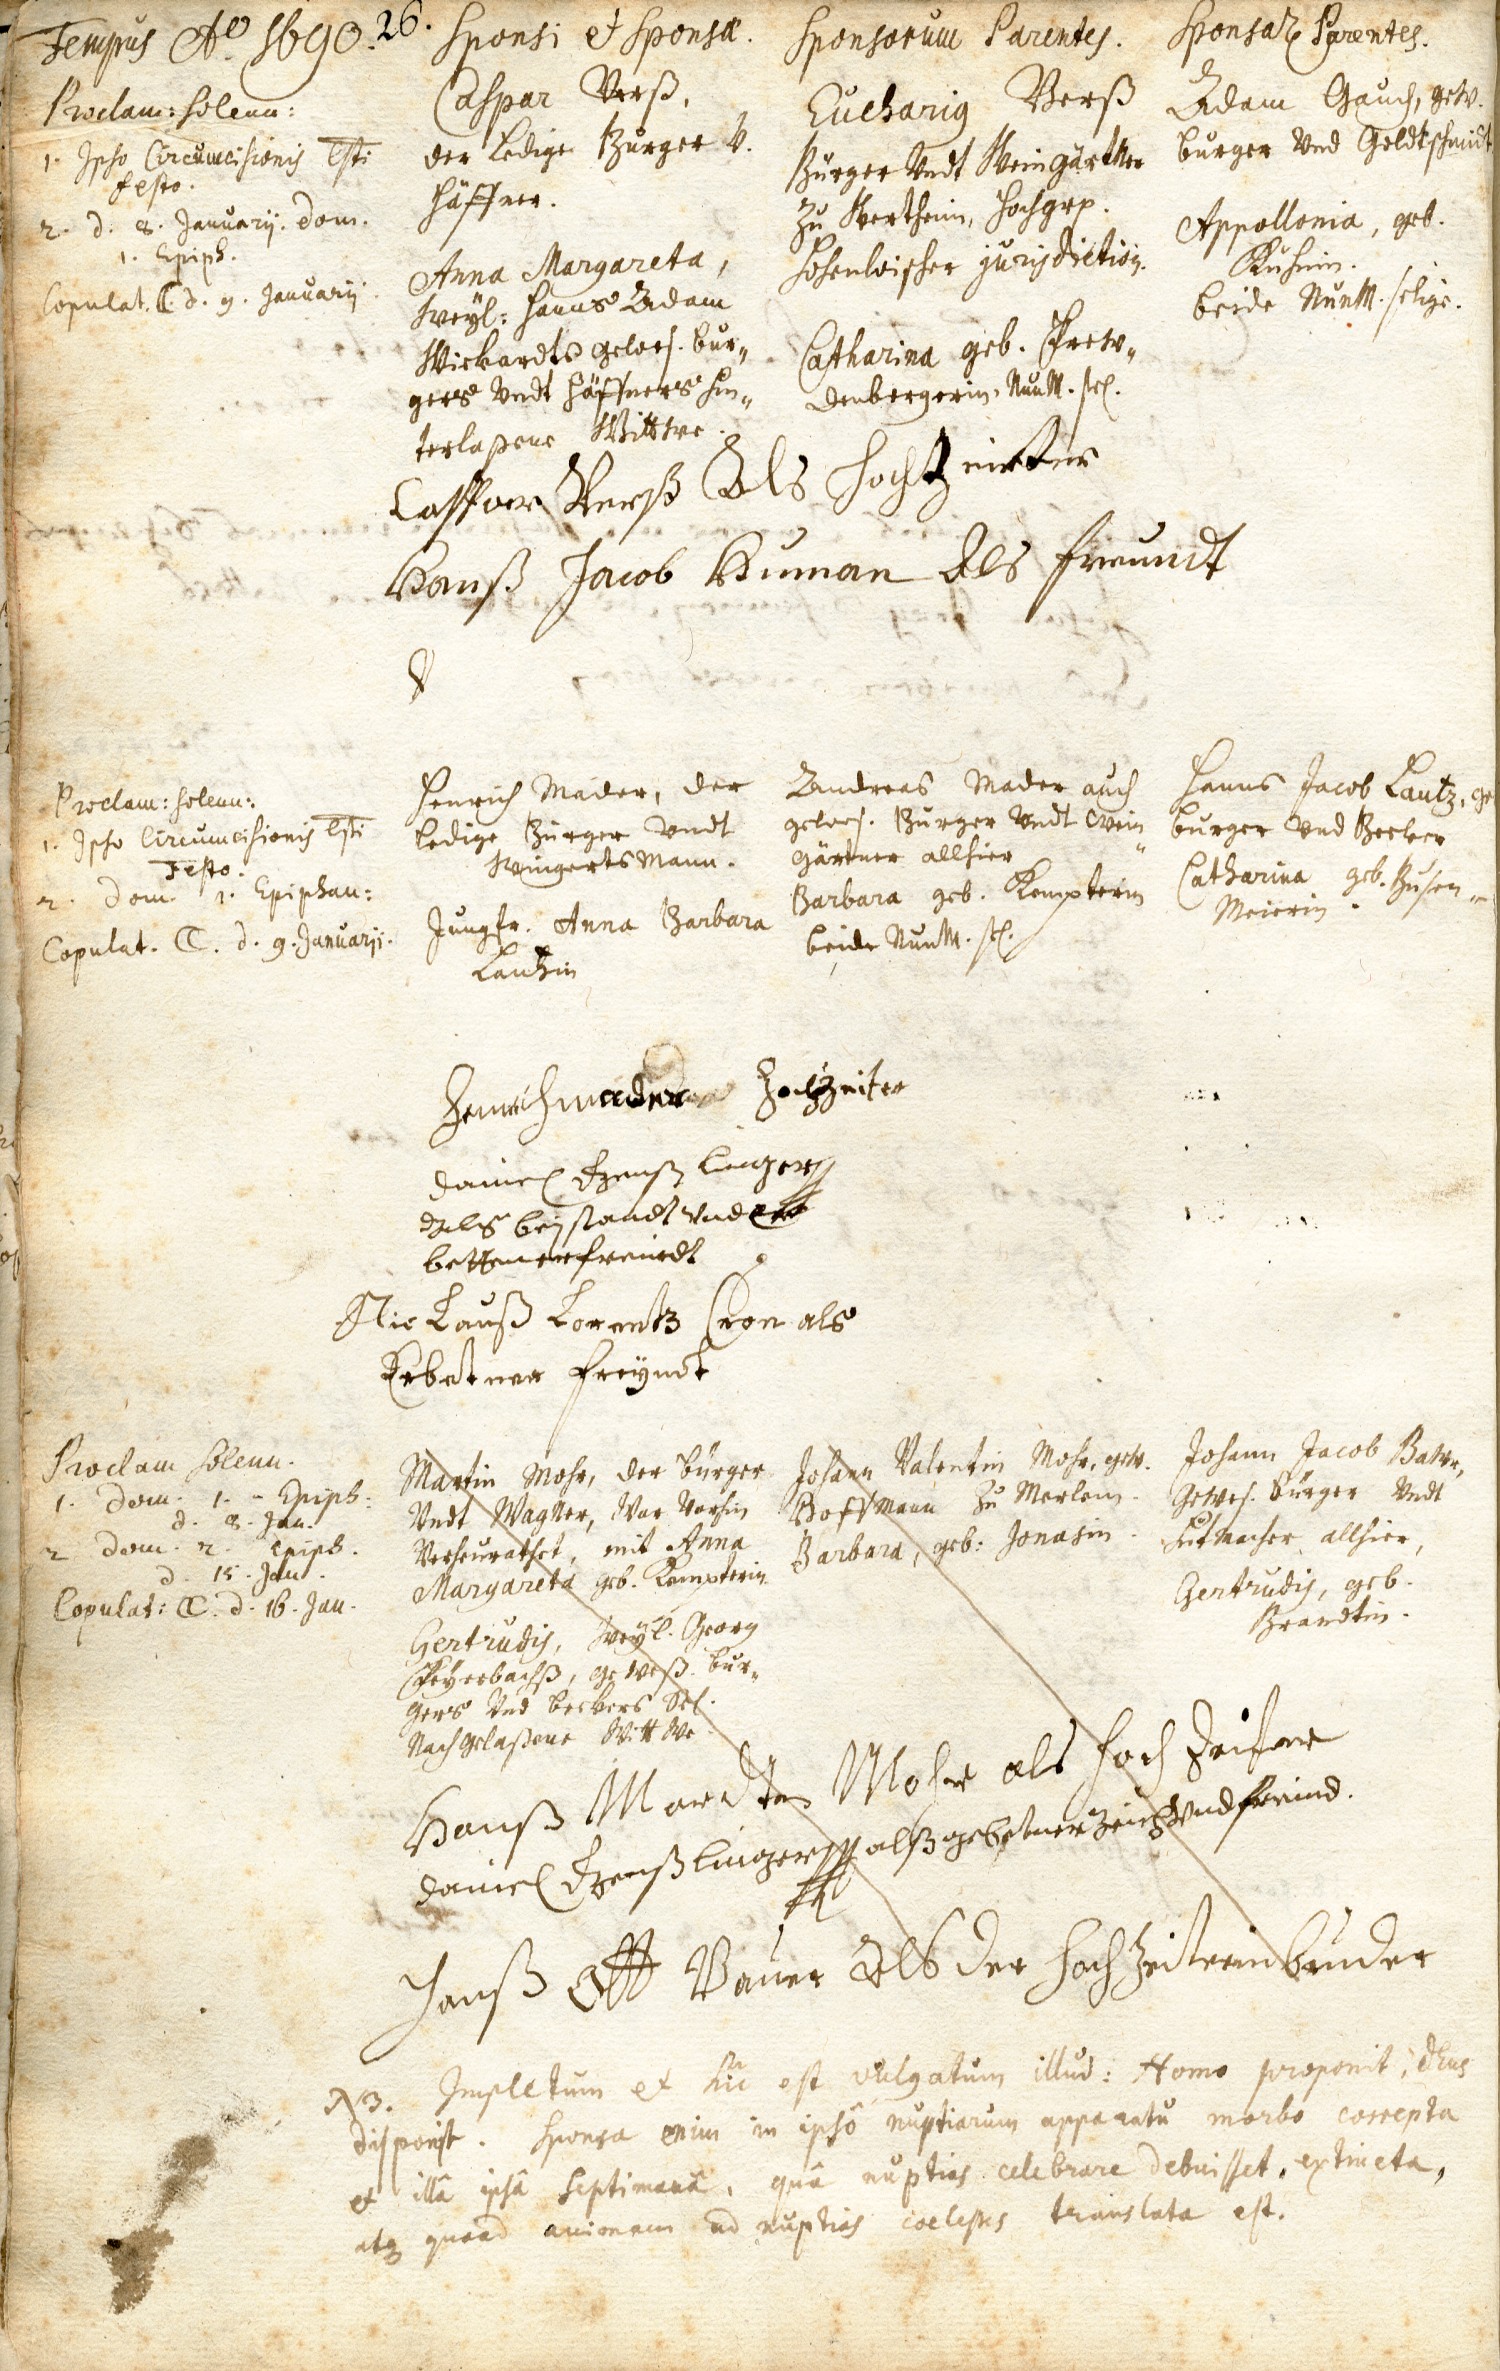 Tempus Aō 1690. 26.
Sponsi et Sponsæ.
Sponsorum Parentes.
Sponsar. Parentes.
Proclam: solenn:
1. Ipso Circumcisionis Xsti
festo.
2. d. 8. Januarij. dom.
1. Epiph.
Copulat. ☾. d. 9. Januarij
Caspar Verß,
der ledige Burger V.
Häffner.
Anna Margareta,
weyl: Hanns Adam
Wickardts gewes. bur„
gers Vndt Häffners hin„
terlaßene Wittwe.
Eucharig Verß
Burger Vndt Weingärtner
zu Wertheim, Hochgrp.
Hohenloischer jurisdiction.
Catharina geb. Frew„
denbergerin. NunM. sel.
Adam Gauch, gew.
burger Vnd Goldtschmidt
Appollonia, geb.
Kuhnin.
beide NunM. selige.
Casspar Verß Als Hochtzeitter
Hanß Jacob Human Als freundt
Proclam: solenn:
1. Ipso Circumcisionis Xsti
Festo.
2. dom. 1. Epiphan:
Copulat. ☾. d. 9. Januarij.
Henrich Mader, der
ledige Burger Vndt
WingertsMann.
Jungfr. Anna Barbara
Lautzin
Andreas Mader auch
gewes. Burger Vndt Wein„
gärtner allhier
Barbara geb. Kempterin
beide NunM. sel.
Hanns Jacob Lautz, ge
burger Vnd Becker
Catharina geb. Busen„
Meierin.
Henrich mader Hochzeiter
Daniel Ehenßlinger
Als beystandt vnd
bettener freindt
Nic Lauß Lorentz Cron als
Erbetner freyndt
Proclam solenn.
1. Dom. 1. Epiph:
d. 8. Jan.
2 Dom. 2. Epiph.
d. 15. Jan.
Copulat: ☾. d. 16. Jan.
Martin Mohr, der bürger
Vndt Wagner, War Vorhin
Verheurathet, mit Anna
Margareta geb. Kempterin
Gertrudis, weyl. Georg
Feyerbachß, geweß. bur„
gers Vnd beckers Sel.
Nachgelaßene WittWe
Johann Valentin Mohr, gew.
HoffMann zu Merlem.
Barbara, geb: Jonasin.
Johann Jacob Bawr,
Gewes. bürger Vndt
Hutmacher allhier,
Gertrudis, geb.
Brandtin.
Hanß Mardten Mohr als Hoch Zeiter
Daniel Ehenßlinger alß gebetner Zeich Vnd freind.
Hanß Ott Bauer Als der Hochzeiterin bruder
NB. Impletum et hic est vulgatum illud: Homo proponit, Deus
disponit. Sponsa enim in ipsô nuptiarum apparatu morbo correpta
et illâ ipsâ septimanâ, quâ nuptias celebrare debuisset, extincta,
atq quoad animam ad nuptias coelestes translata est.